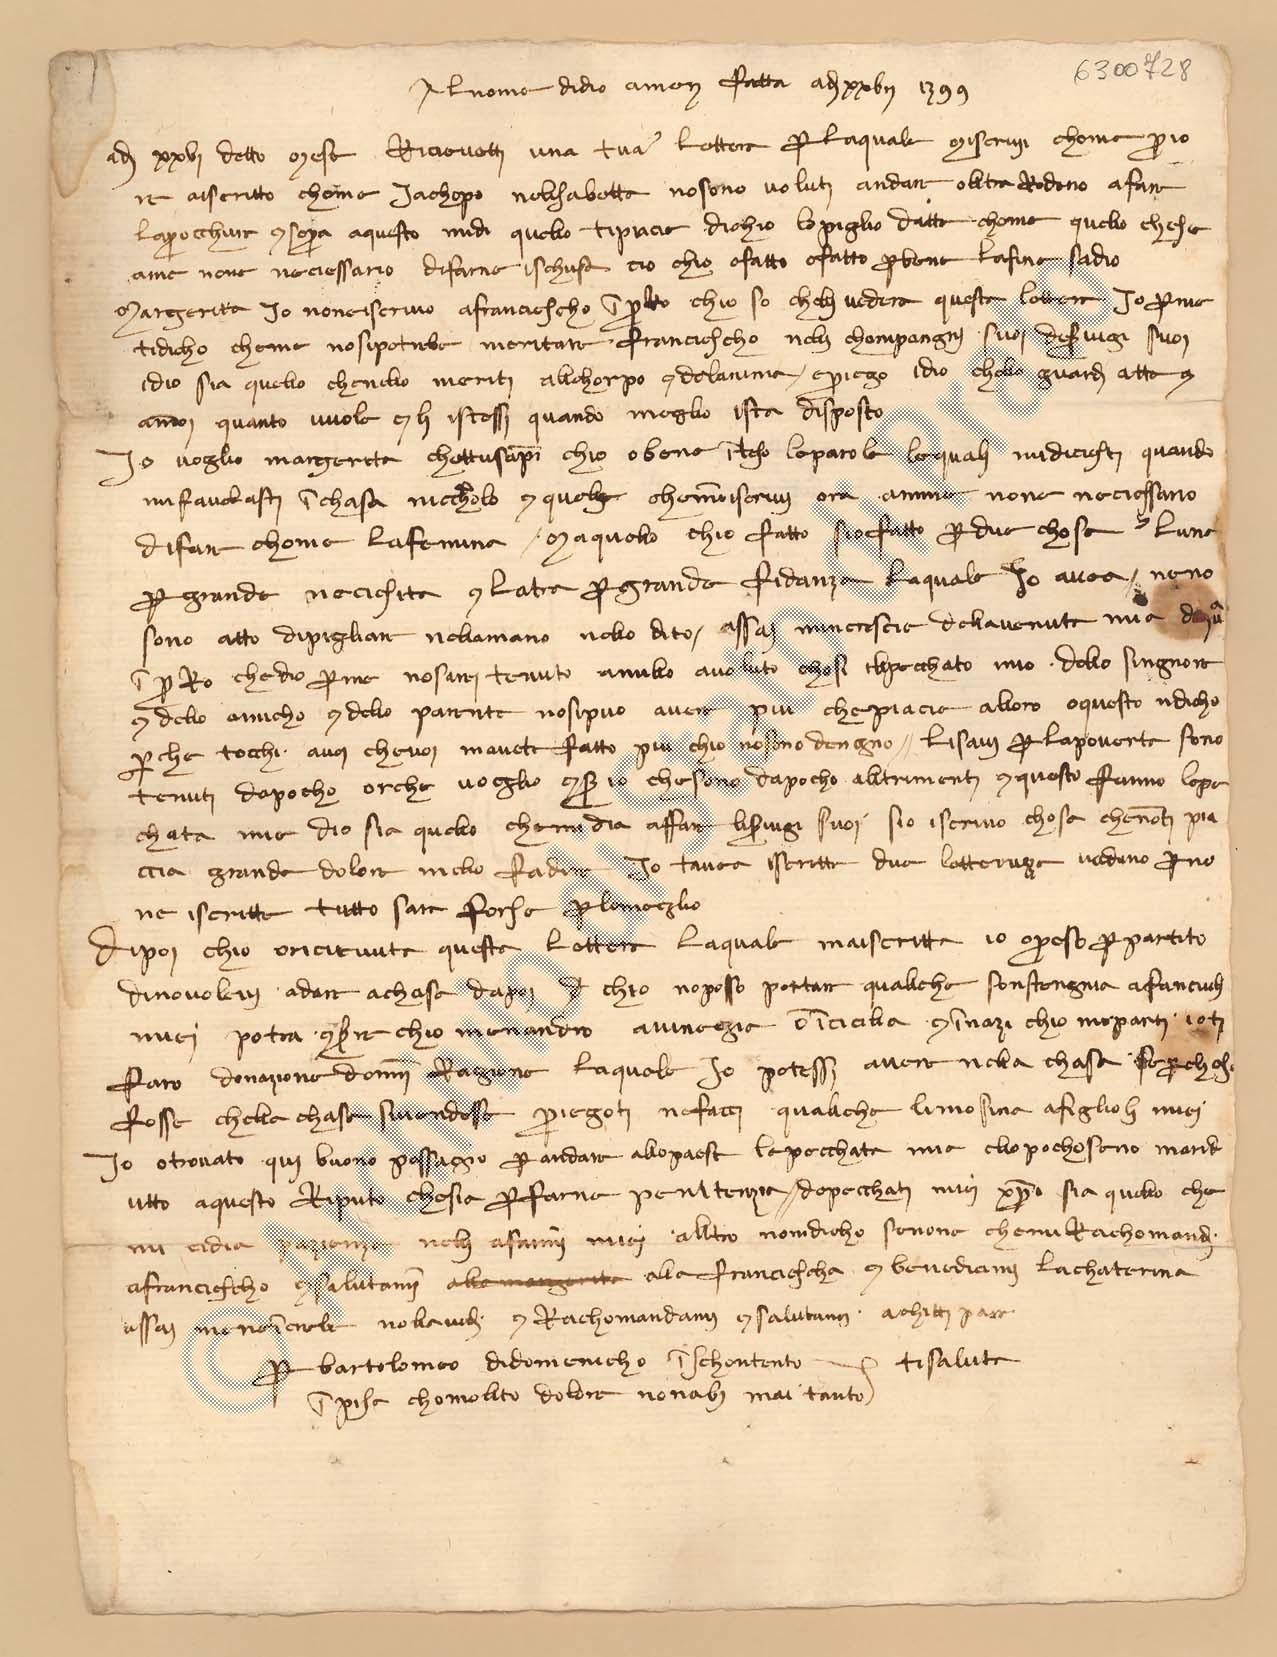 6300728
Al nome didio amen fatta adj xxvij 1399
adj xxvj detto mese Ricievetti una tua lettera p laquale mi scrivi chome prio
re aiscritto chome Jachopo nelisabetta nosono voluti andare oltra Rodano afare
laprocchiure e sopra aquesto midi quello tipiacie dichio lopiglio datte chome quello chese
ame none neciessario difarne ischusa cio chio ofatto ofatto pbene lafine sadio
Margerita Io none iscrivo afranciescho ipero chio so cheli vedera questa lettera Io pme
tidicho chome nosipotrebe meritare franciescho neli chompangnj suoj deservigi suoj
idio sia quello chenello meriti allchorpo e delanima / epriego idio chello guardi atte e
anoj quanto vuole e li istessi quando meglio ista disposto
Io voglio margerita chettusapi chio obene inteso leparole lequali midiciesti quando
mifavelasti i chasa nicholo e quele chemiscrivi ora amme none neciessario
difare chome lafemina / Maquello chio fatto sio fatto p due chose luna
p grande neciesita e latra p grande fidanza laquale Io avea / neno
sono atto dipigliare nellamano nello dito / assaj mincrescie dellavenuta mia
ipero chedio pme nosarej tenuto anullo avoluto chosi ilpecchato mio dello singnore
e dello amicho e dello parente nosipuo avere piu chepiacie alloro oquesto ridicho
pche tocchi avoj chevoj mavete fatto piu chio nosono dengno // lisavi p lapoverta sono
tenuti dapocho orche voeglio e s io chesono dapocho altrimenti e questo fanno lepe
chata mie dio sia quello chemidia affare liservigi suoj sio iscrivo chosa chenoti pia
ccia grande dolore melo fadire Io tavea iscritta due letteruzze vedano pno
ne iscritta tutto sara forse p lomeglio
Dipoj chio oricievuta questa lettera laquale maiscritta io opreso p partito
dinovolervi adare achasa dapoj chio noposso portare qualche sonstengnia afanciulj
miej potra essere chio menandro avinegia o i cicilia e inazi chio meparti ioti
faro donazione dongni Ragione laquale Io potessi avere nella chasa se p chaso
fosse chella chasa sivendesse priegoti nefacci qualche limosina afiglioli miej
Io otrovato qui buono passagio p andare allopaese lepecchata mie ellopochoseno manno
utto aquesto Riputo chesia p farne penitenzia // depecchati miej xpo sia quello che
mi cidia pazienza neli afanni miej alltro nonidicho senone chemiRachomandi
afranciescho e salutami alla margerita ala franciescha e benedicimi lachaterina
assaj mene increbe nollavidi e Rachomandami e salutami achitti pare
p bartolomeo didomenicho i schontento tisaluta
i pisa chomolto dolore nonabi mai tanto